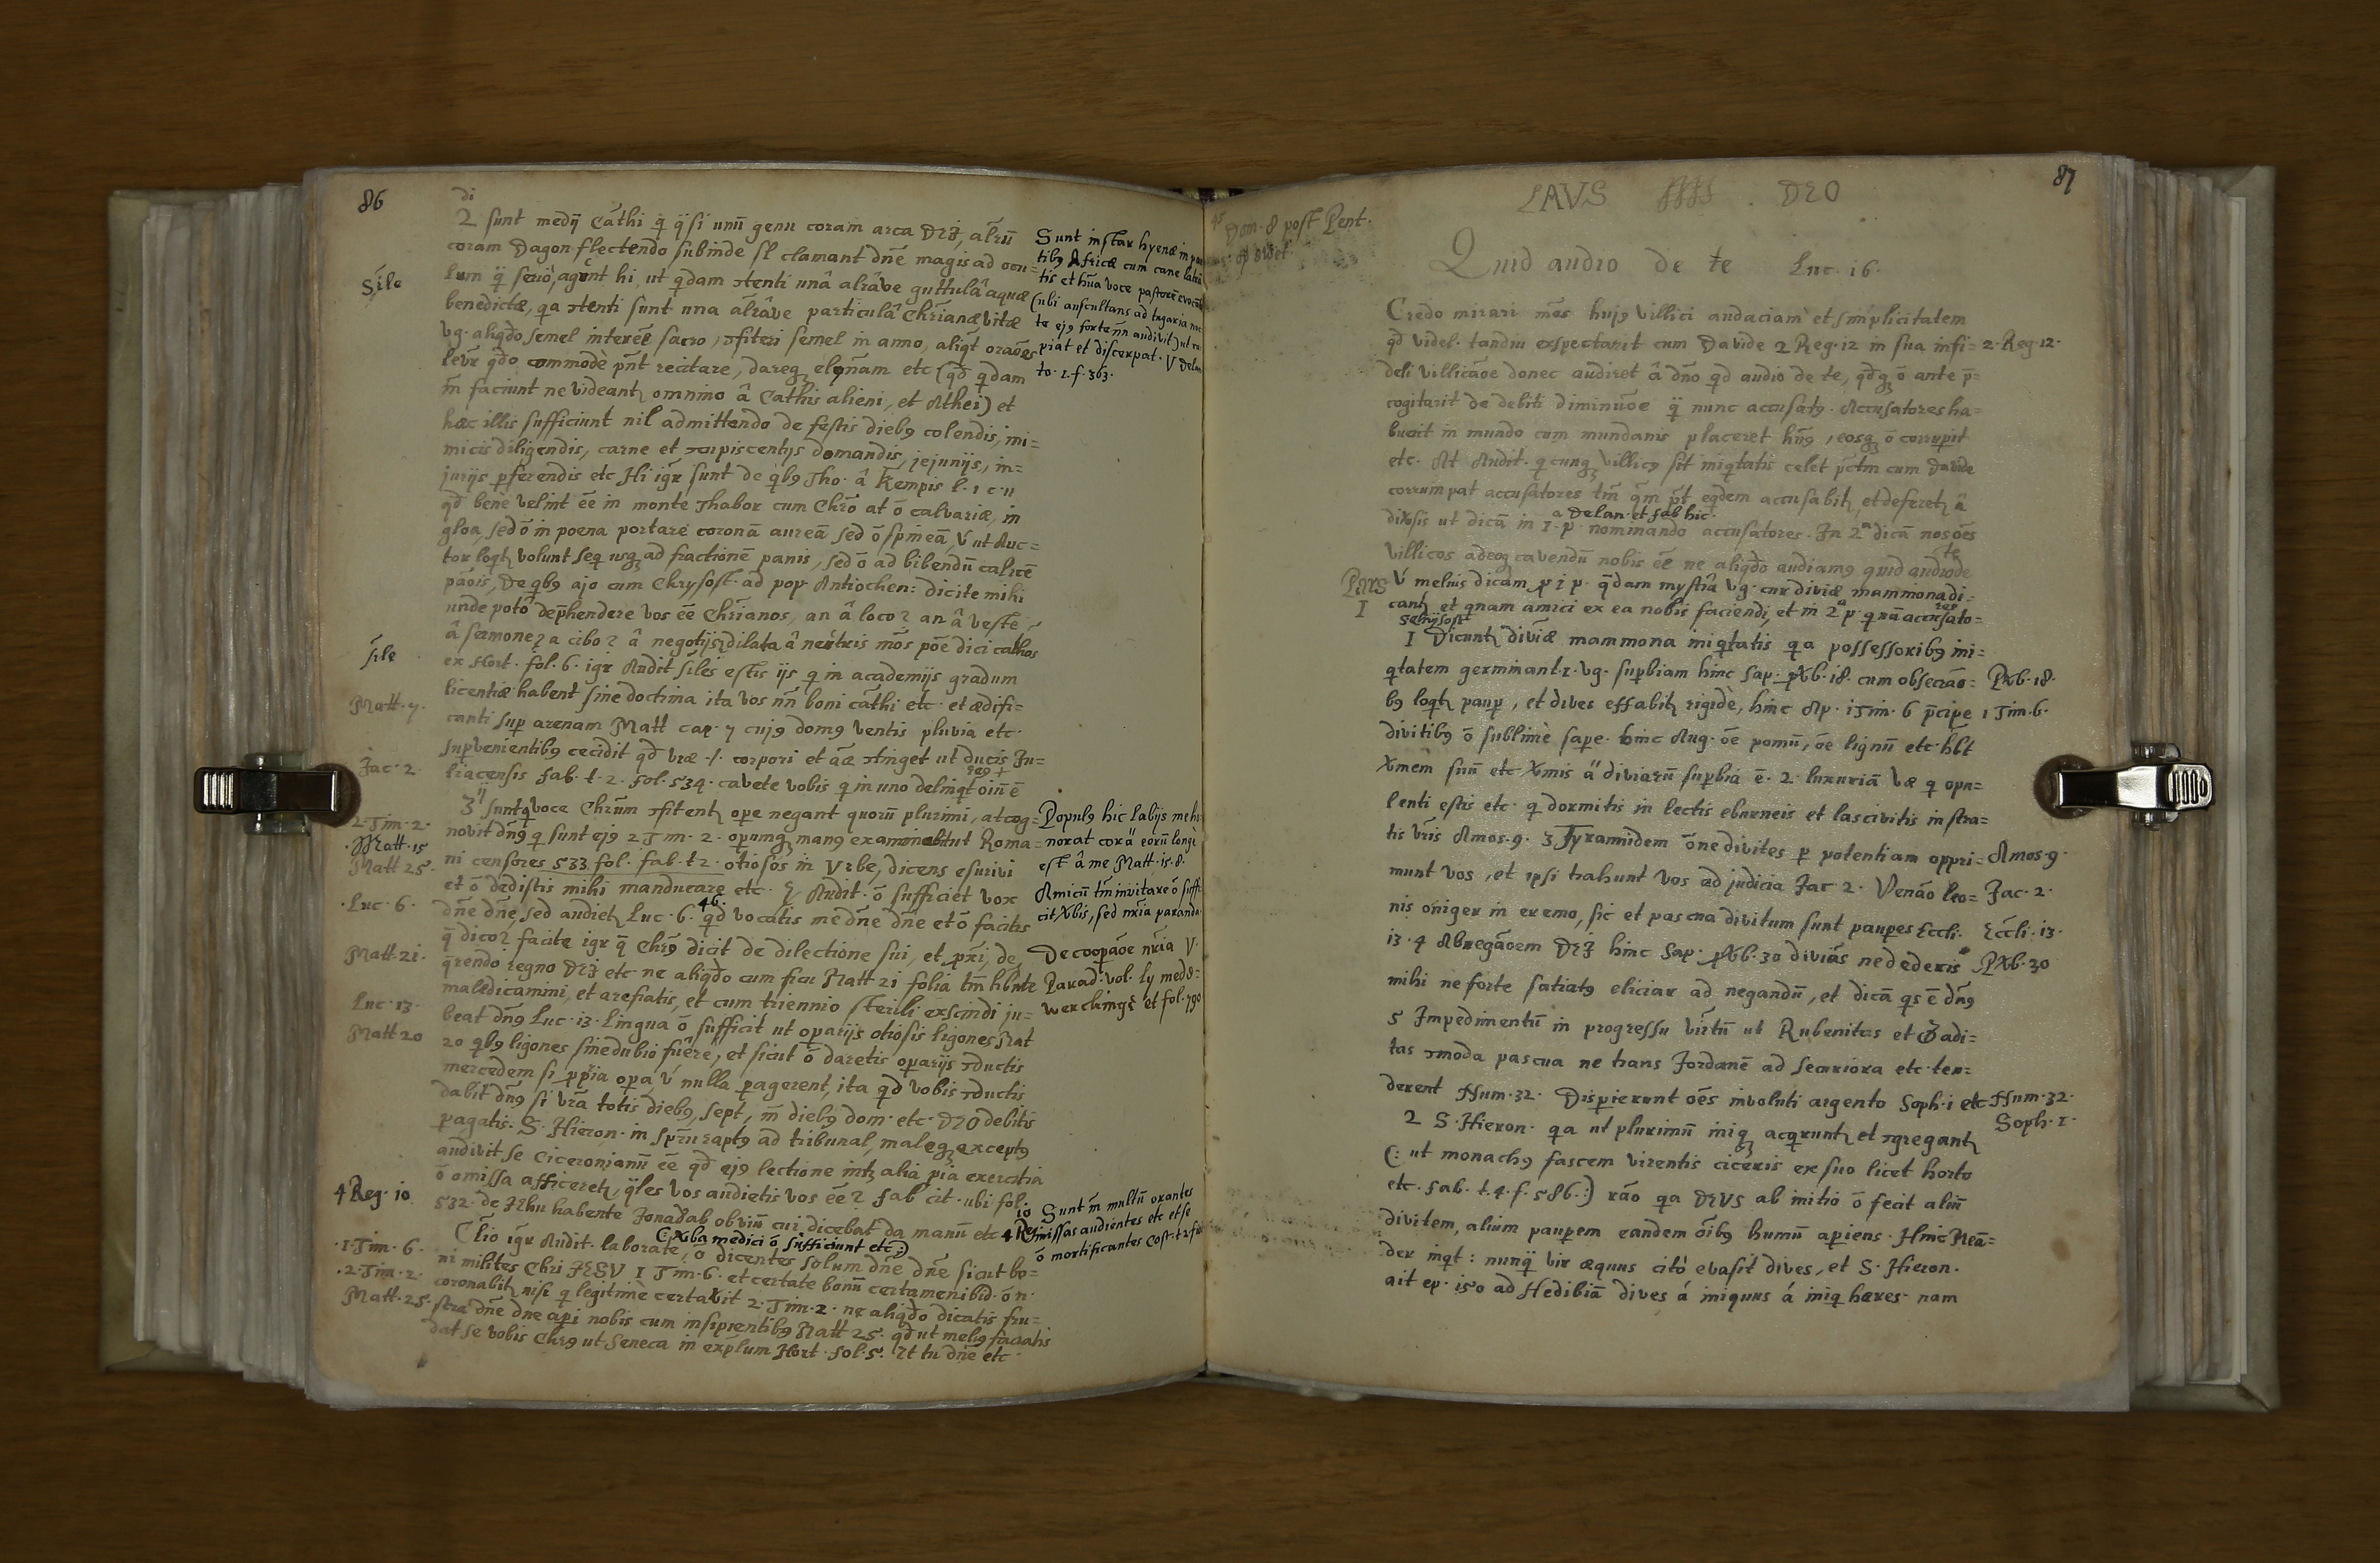 86
di
Sile
2 sunt medij Cathi q̄ q̈si unū genu coram arca DEI, alrū
coram Dagon flectendo subinde sl clamant dn̄e magis ad ocu=
lum q̈ serio, agunt hi, ut qdam ɔtenti unâ alrâve guttulâ aquæ
benedictæ, qa ɔtenti sunt una alrâve particulâ Chrīanæ vitæ
vg. aliqdo semel interēē sacro, ɔfiteri semel in anno, aliqt orāoēs
levr qdo commodè pn̄t recitare, dareq; elynam etc (qd qdam
m̄ faciunt ne videantr omnino â Cathis alieni, et Athei) et
hæc illis sufficiunt nil admittendo de festis diebꝰ colendis, ini=
micis diligendis, carne et ɔcupiscentijs domandis, jejunijs, in=
jurijs pferendis etc Hi igr sunt de qbꝰ Tho. â Kempis l. 1 c. 11
qd benè velint ēē in monte Thabor cum Chrō at ō calvariæ, in
gloa, sed ō in poena portare coronā aureā sed ō spineā, v ut Auc=
tor loqtr volunt seq usq; ad fractionē panis, sed ō ad bibendū calicē
pāois, De qbꝰ ajo cum Chrysost. ad pop. Antiochen: dicite mihi
unde potô dep̄hendere vos ēē Chrīanos, an â loco? an â veste
â sermone? a cibo? â negotijs? dilata â neutris mōs pōē dici cathos
sile
ex Hort. fol. 6. igr Audit siles estis ijs q in academijs gradum
licentiæ habent sine doctrina ita vos nn̄ boni cāthi etc. et ædifi=
Matt. 7.
canti sup arenam Matt cap. 7 cujꝰ domꝰ ventis pluvia etc.
supvenientibꝰ cecidit qd vræ .|. corpori et āæ ɔtinget ut ducis Ju=
Jac. 2.
liacensis fab. t. 2. fol. 534. cavete vobis q in uno delinqt oiū ē
reꝰ +
3 ij sunt q voce Chrūm ɔfitentr ope negant quorū plurimi, at cog=
2. Tim. 2.
novit dn̄ꝰ q sunt ejꝰ 2 Tim. 2. opumq; manꝰ examinabit ut Roma=
.Matt. 15
ni censores 533 fol. fab. t 2. otiosos in Urbe, dicens esurivi
Matt 25.
et ō dedistis mihi manducare etc. E Audit. ō sufficiet vox
.Luc. 6.
dn̄e dn̄e, sed audietr Luc. 6. 46. qd vocatis me dn̄e dn̄e et ō facitis
q̄ dico? facite igr q̄ Chrꝰ dicit de dilectione sui, et pxi, de
Matt. 21.
q̄rendo regno DEI etc ne aliqdo cum ficu Matt 21 folia tm̄ hbnte
maledicamini, et arefiatis, et cum triennio sterili exscindi ju=
Luc. 13.
beat dn̄ꝰ Luc. 13. Lingua ō sufficit ut oparijs otiosis ligones Mat
Matt 20
20 qbꝰ ligones sinedubio fuêre, et sicut ō daretis oparijs ɔductis
mercedem si ppria opa, v nulla pagerent, ita qd vobis ɔductis
dabit dn̄ꝰ si vrā totis diebꝰ, sept, m̄ diebꝰ dom. etc. DEO debitis
pagatis. S. Hieron. in sprū raptꝰ ad tribunal, maleq; exceptꝰ
audivit se Ciceronianū ēē qd ejꝰ lectione intr alia pia exercitia
ō omissa afficeretr, qles vos audietis vos ēē? fab cit. ubi fol.
4 Reg. 10
532. de JEhu habente Jonadab obviū cui dicebat da manū etc 4 Reg
10
(Xba medici ō sufficiunt etc:)
C̄lio igr Audit. laborate, ō dicentes solum dn̄e dn̄e sicut bo=
.1. Tim. 6.
ni milites Chri JESU 1 Tim. 6. et certate bonū certamen ibid. ō n.
.2. Tim. 2.
coronabitr nisi q legitimè certavit 2. Tim. 2. ne aliqdo dicatis fru=
Matt. 25.
stra dn̄e dn̄e api nobis cum insipientibꝰ Matt 25. qd ut meliꝰ faciatis
dat se vobis Chrꝰ ut Seneca in explum Hort. fol. 5. Et tu dn̄e etc.
Sunt instar hyenæ in par
tibꝰ Africæ cum cane latrā
tis et hūa voce pastorē evocā
(ubi auscultans ad tuguria no
te ejꝰ forte nn̄ audivit) ut ra
piat et discerpat. V Delan
to. 1. f. 363.
Populꝰ hic labijs me ho
norat cor ä eorū longè
est â me Matt. 15. 8.
Amicū tm̄ invitare ō suffi
cit Xbis, sed nria paranda
De coopāoe nria V.
Parad. vol. ly mede=
werckinge et fol. 790
Sunt m̄ multū orantes
missas audientes etc et se
ō mortificantes Cost. t 2 fo
87
LAVS DEO
45 Dom. 8 post Pent.
Quid audio de te Luc. 16.
Credo mirari mēs hujꝰ villici audaciam et simplicitatem
qd videl. tandiu exspectarit cum Davide 2 Reg. 12 in sua infi= 2. Reg. 12.
deli villicāoe donec audiret â dn̄o qd audio de te, qdq; ō ante p̄=
cogitarit de debiti diminūoe q̈ nunc accusatꝰ. Accusatores ha=
buerit in mundo cum mundanis placeret hn̄ꝰ, eosq; ō corrupit
etc. At Audit. qcunq; villicꝰ sit iniqtatis celet pctm cum Davide
corrumpat accusatores tm̄ qm̄ pt eqdem accusabitr, et deferetr â
a Delan. et fab hic.
diversis ut dicā in 1. p. nominando accusatores. In 2ª dicā nos ōēs
villicos adeoq; cavendū nobis ēē ne aliqdo audiamꝰ quid audio de
te
Pars
1
V meliꝰ dicam p 1 p. qdam mystīa vg. cur diviæ mammona di=
cantr et qnam amici ex ea nobis faciendi, et in 2ª p. q nā accusato=
res
s chrijsost
1 Dicuntr diviæ mammona iniqtatis qa possessoribꝰ ini=
qtatem germinant. 1. vg. supbiam hinc sap. pXb. 18. cum obsecrāo= PXb. 18.
bꝰ loqtr paup, et dives effabitr rigidè, hinc Ap. 1 Tim. 6 p̄cipe 1 Tim. 6.
divitibꝰ ō sublimè sape. hinc Aug. ōē pomū, ōē lignū etc. hbt
Xmem suū etc. Xmis ä diviarū supbia ē. 2. luxuriā Væ q opu=
lenti estis etc. q dormitis in lectis eburneis et lascivitis in stra=
tis vris Amos. 9. 3 Tyrannidem ōne divites p potentiam oppri= Amos. 9.
munt vos, et ipsi trahunt vos ad judicia Jac 2. Venāo leo= Jac. 2.
nis onager in eremo, sic et pascua divitum sunt paupes Eccli. Eccli. 13.
13. 4 Abnegāoem DEI hinc Sap. pXb. 30 diviās ne dederis PXb. 30
mihi ne forte satiatꝰ eliciar ad negandū, et dicā qs ē dn̄ꝰ
5 Impedimentū in progressu virtū ut Rubenitas et Gadi=
tas ɔmoda pascua ne trans Jordanē ad securiora etc. ten=
derent Num. 32. Disperierunt ōēs involuti argento Soph. 1 etc Num. 32.
Soph. 1.
2 S. Hieron. qa ut plurimū iniq; acqruntr et ɔgregantr
(: ut monachꝰ fascem virentis ciceris ex suo licet horto
etc. fab. t. 4. f. 586. :) rāo qa DEUS ab initio ō fecit aliū
divitem, alium paupem eandem ōibꝰ humū apiens. Hinc Meā=
der inqt: nunq̄ vir æquus citò evasit dives, et S. Hieron.
ait ep. 150 ad Hedibiā dives á iniquus á iniq hæres. nam